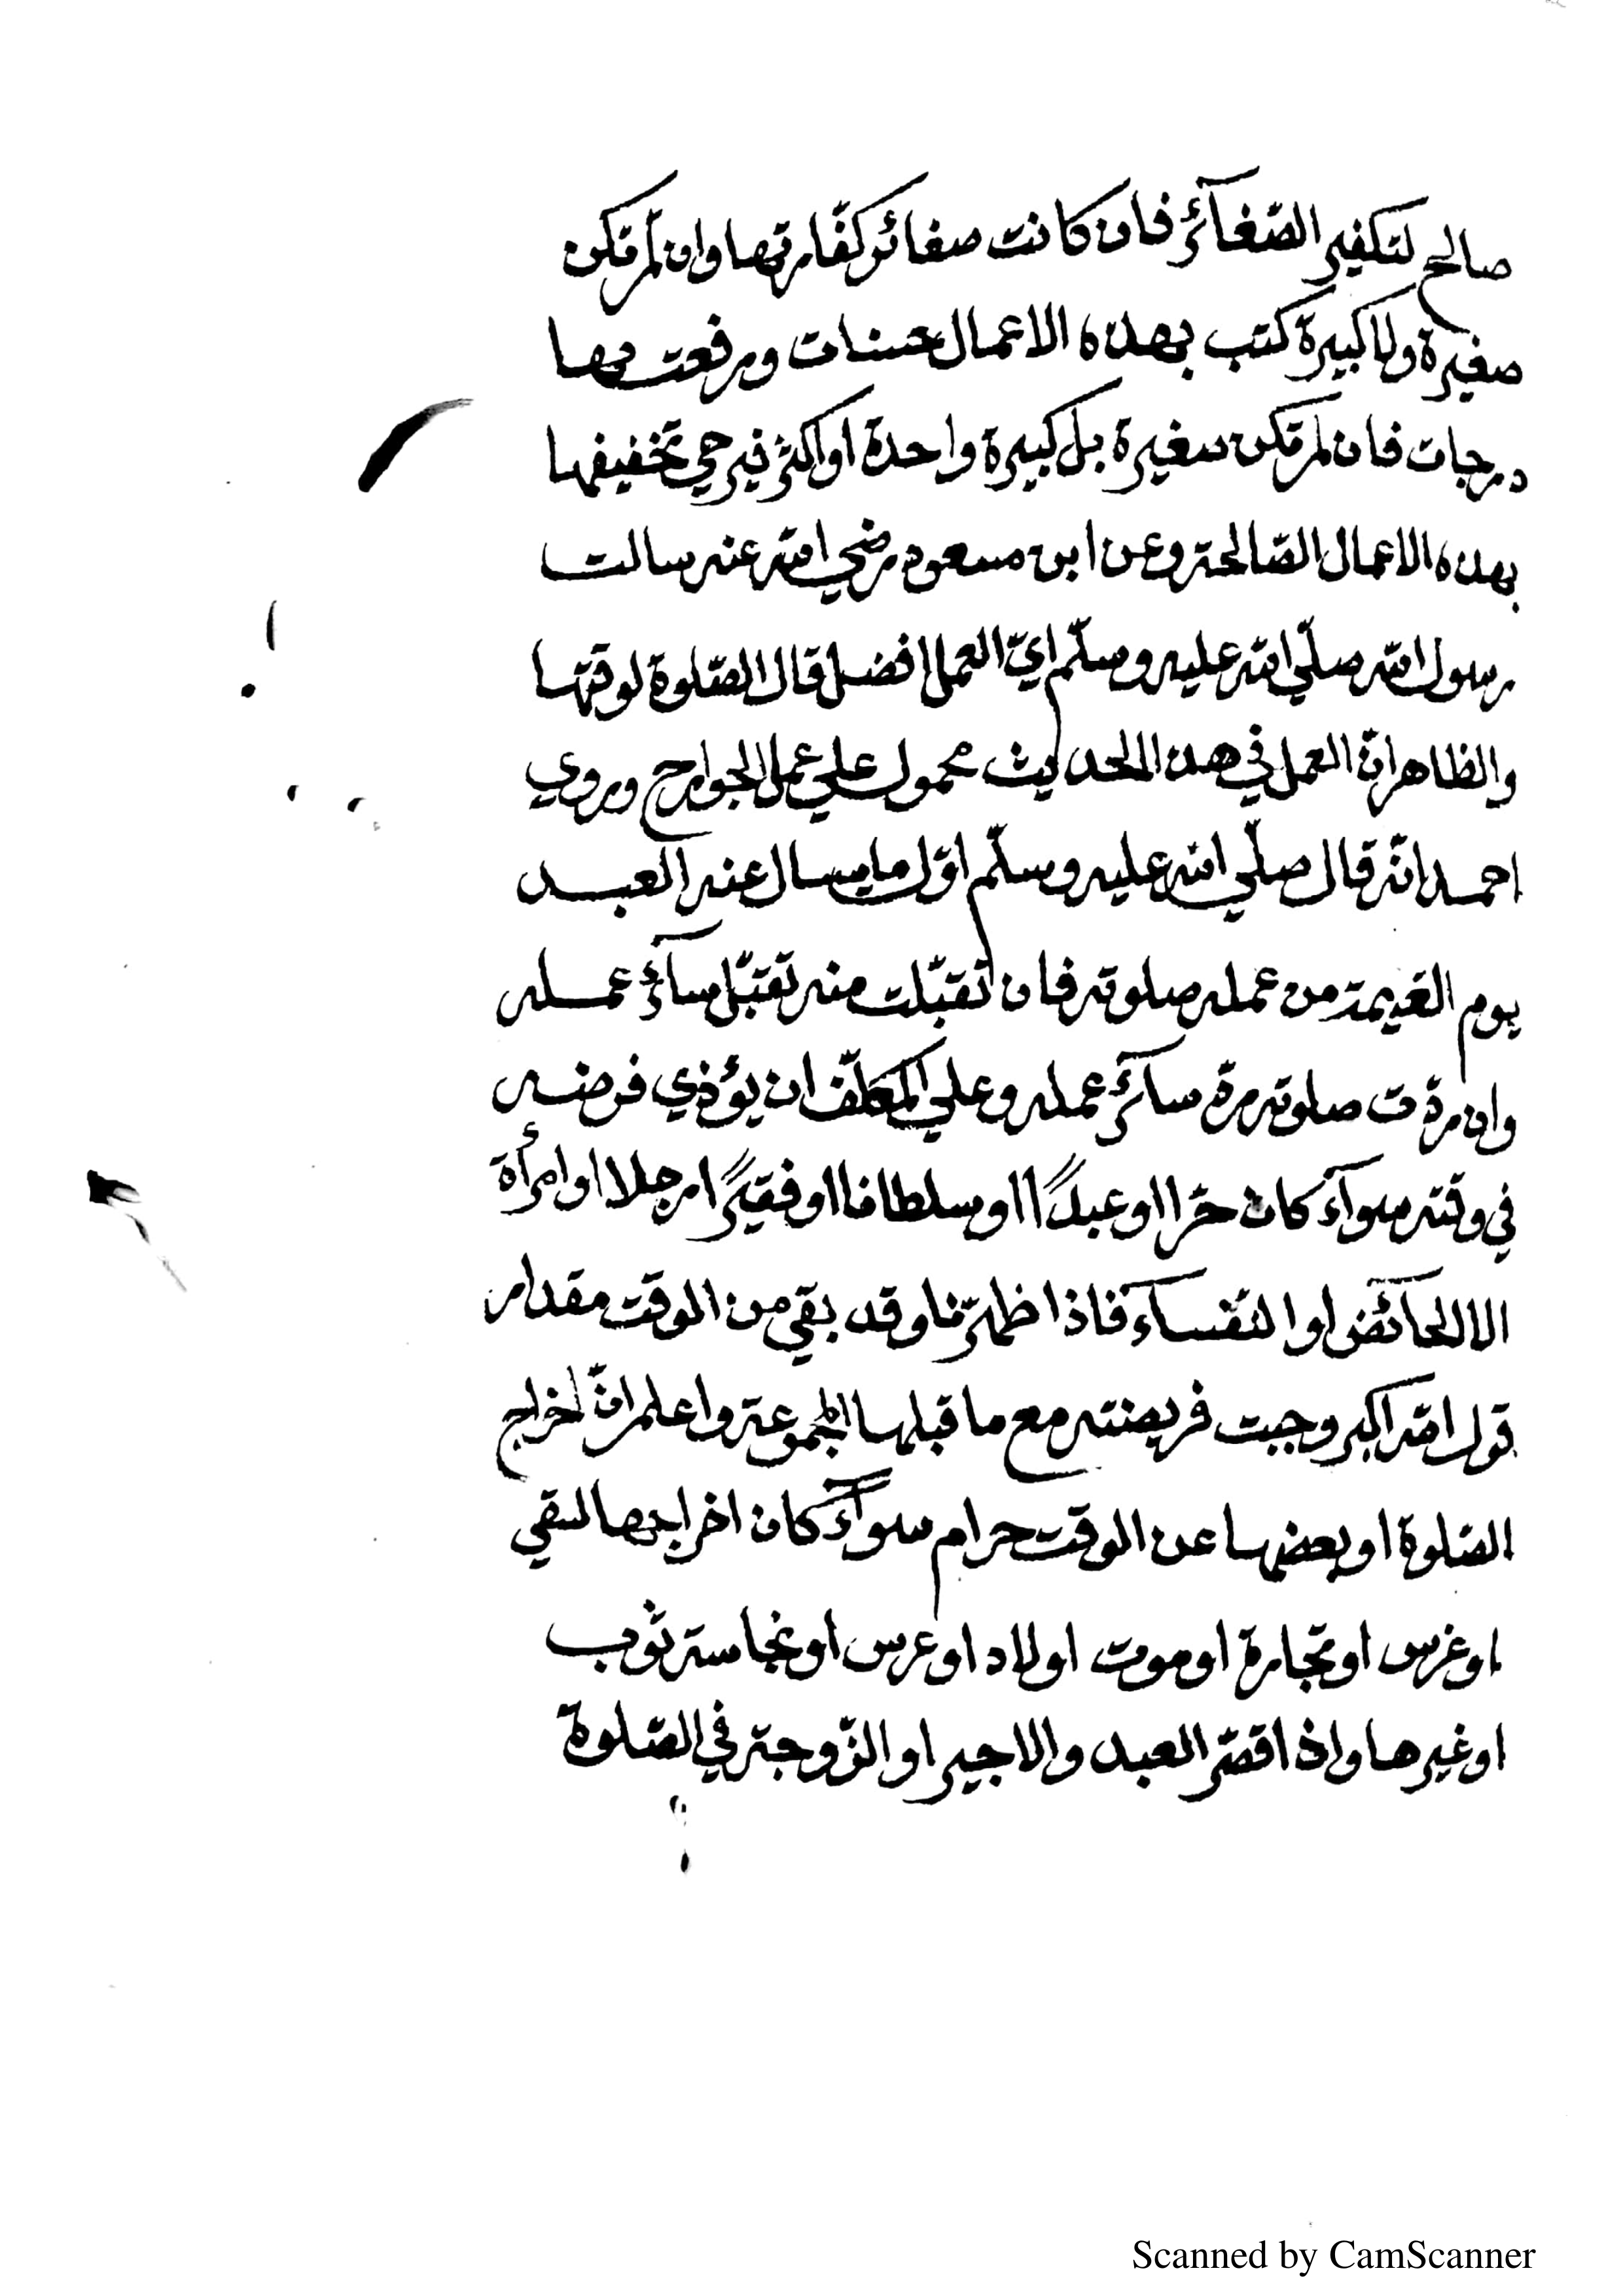 صالح لتكفير الصّغآئر فان كانت صغائر كفّارتها وان لم تكن
صغيرة ولا كبيرة كتب بهذه الاعمال حسنات ورفعت بها
درجات فان لم تكن صغيرة بل كبيرة واحدة او اكثر فيرجي تخفيفها
بهذه الاعمال الصّالحة وعن ابن مسعود رضي الله عنه سالت
رسول الله صلّي الله عليه وسلّم ايّ العمل افضل قال الصّلوة لوقتها
والظاهر انّ العمل في هذا الحديث محمول علي عمل الجوارح وروي
احمد انّه قال صلّي الله عليه وسلّم اوّل ما يسال عنه العبد
يوم القيمة من عمله صلوته فان تقبّلت منه تقبّل سآئر عمله
وان ردّت صلوته ردّ سآئر عمله وعلي المكلّف ان يؤدّي فرضه
في وقته سوآء كان حرّا او عبدًا او سلطانا او فقيرًا رجلا او امرأة
الا الحائض او النّفسآء فاذا طهرتا وقد بقي من الوقت مقدار
قول الله اكبر وجبت فريضته مع ما قبلها المجموعة واعلم انّ اخراج
الصّلوة او بعضها عن الوقت حرام سوآء كان اخراجها لسقي
او غرس او تجارة او موت اولاد او عرس او نجاسة ثوب
او غيرها واذا قصّر العبد والاجير او الزّوجة في الصّلوة
Scanned by CamScanner